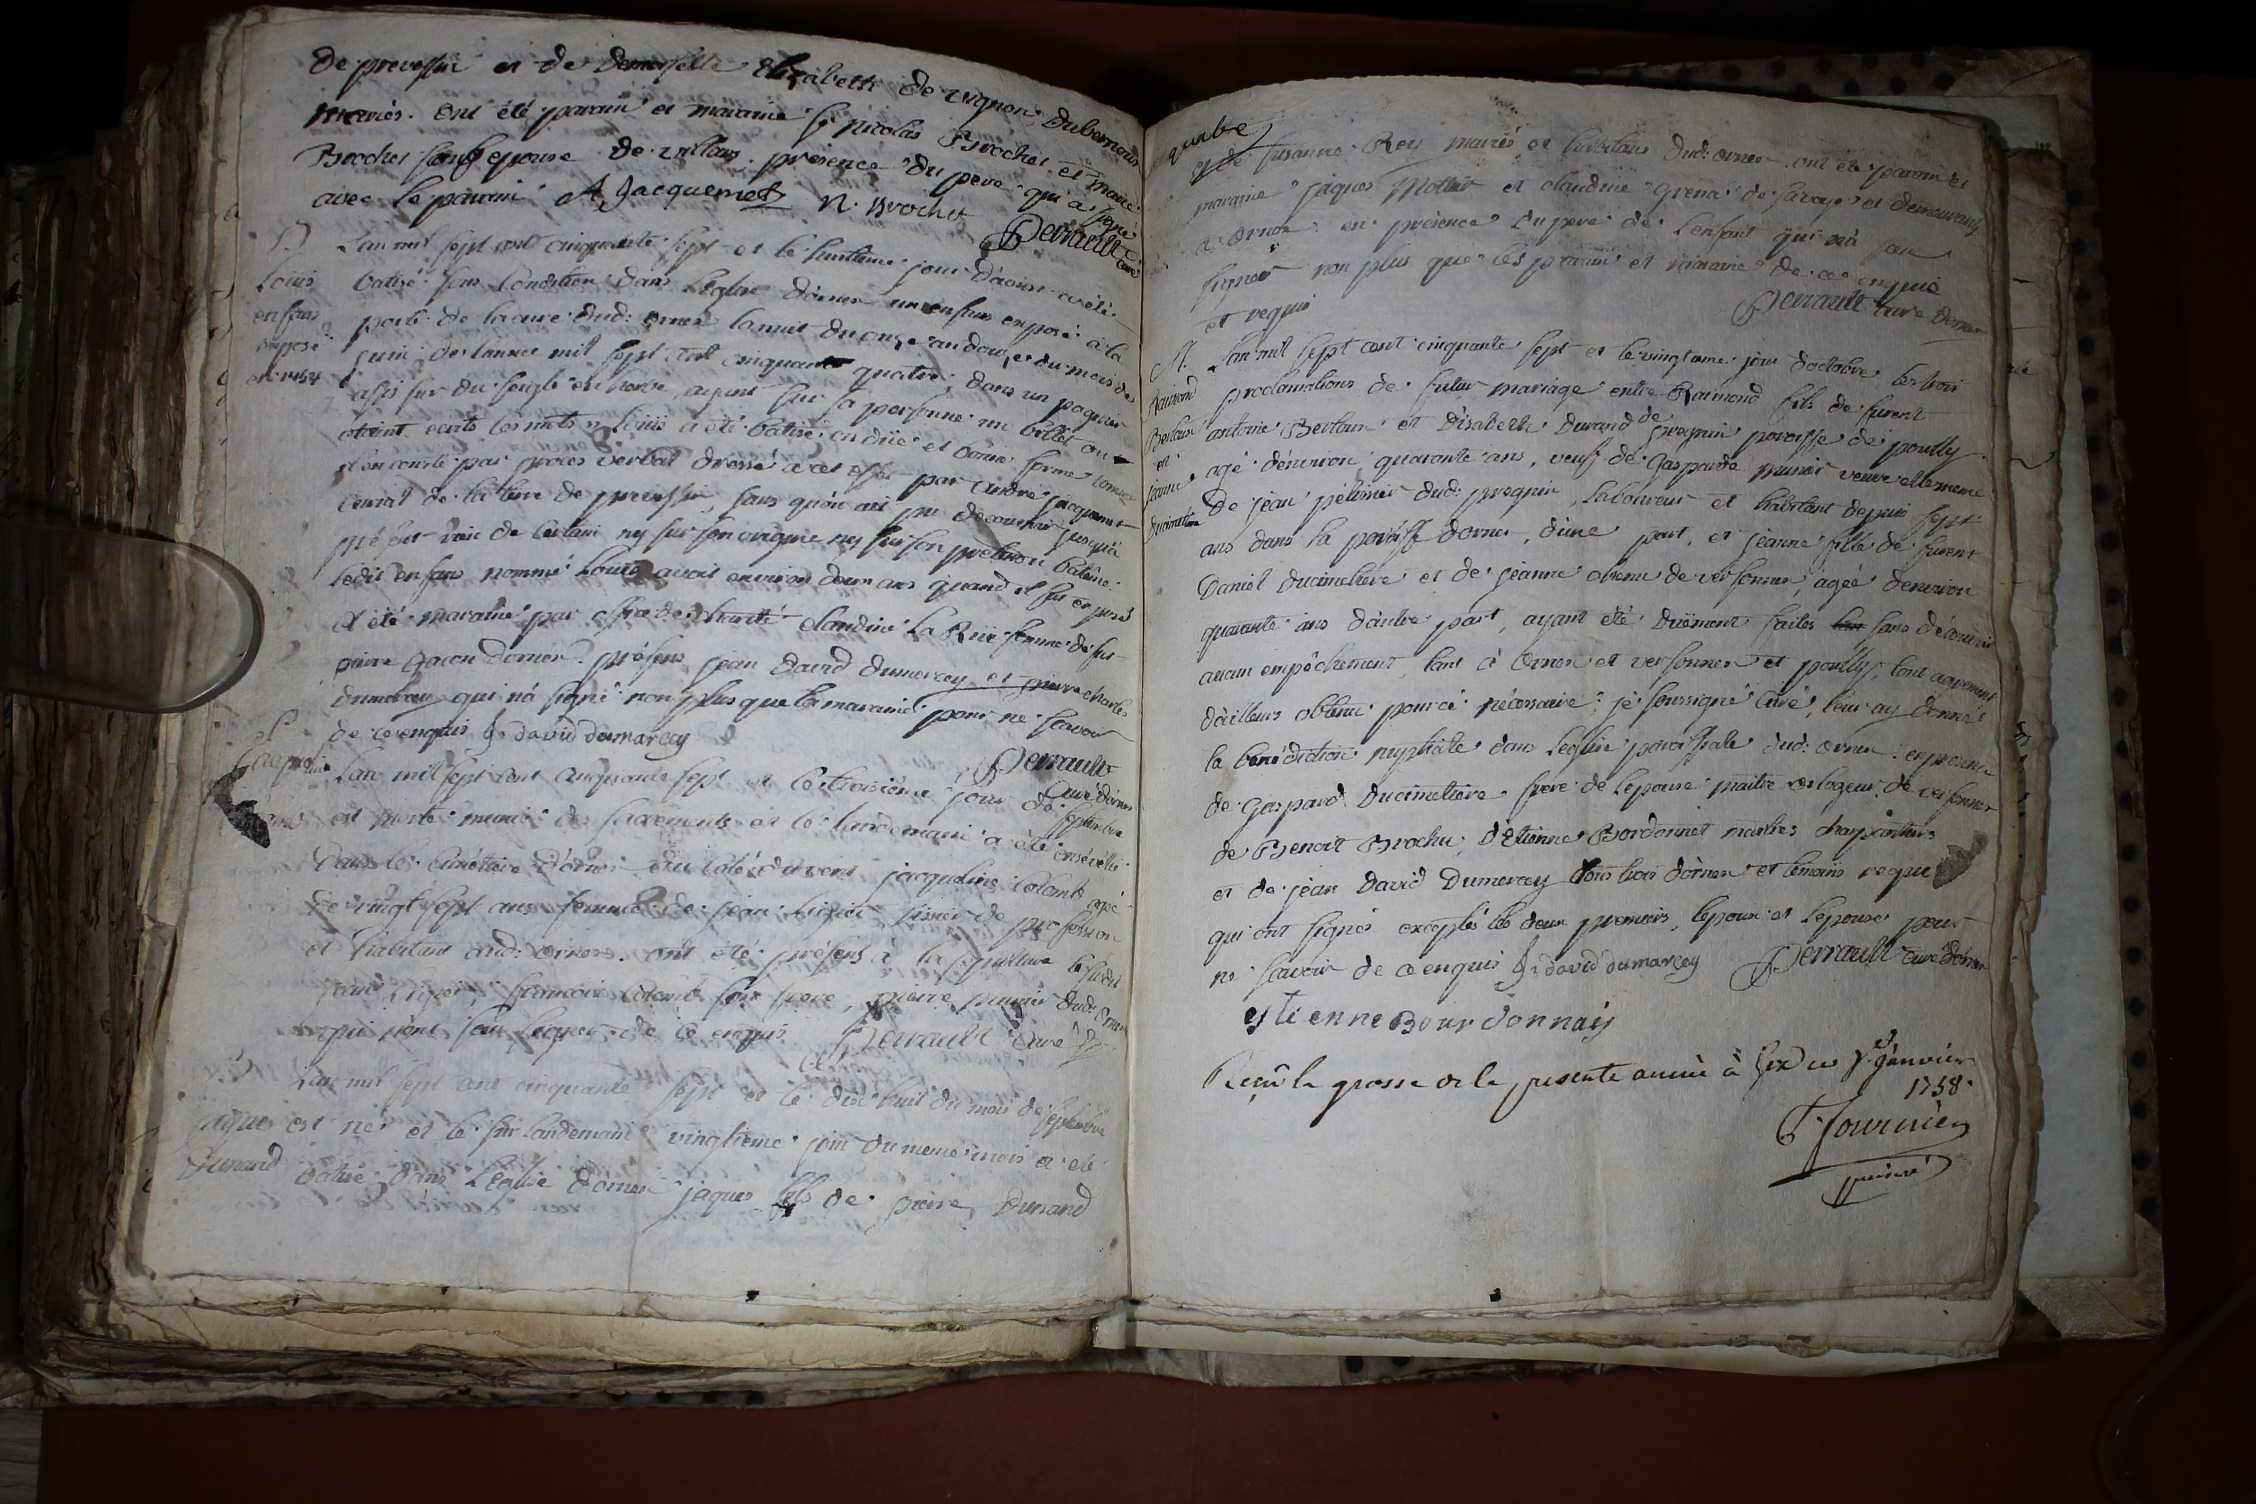 de prevessin et de demoiselle Elizabeth de vignon Dubernous
mariés. ont été parain et maraine Sr nicolas Brochet et marie
Brochet son epouse de villars. présence du pere qui a signé
avec le parain A. Jacquemet N. Brochet
Perrault curé
L'an mil sept cent cinquante sept et le huitième jour d'aoust a été
Louis
batisé sous condition dans l'eglise d'ornex un enfant exposé à la
enfans
porte de la cure dud: ornex la nuit du onze au douze du mois de
exposé
juin de l'année mil sept cent cinquante quatre, dans un paquier
en 1754
assis sur du seigle en herbe, ayant sur sa personne un billet ou
etoint ecrits les mots Louis a été batisé en duë et bonne forme comme
il en conste par proces verbal dressé a cet effet par andré Jacquemet
curial de la terre de prevessin, sans qu'on ait pu decouvrir jusqu'à
présent rien de certain ny sur son origine ny sur son prétendu batême.
Ledit enfans nommé Louis avoit environ deux ans quand il fut exposé
A été maraine par office de charité claudine La Rüe femme de feu
pierre Gacon d'ornex. présens jean david dumarcey et pierre charles
dumarcey qui n'a signé non plus que la maraine pour ne scavoir
de ce enquis J. david dumarcey
Perrault
Curé d'ornex
L'an mil sept cent cinquante sept et le troisième jour de septembre
est morte munie de sacrements et le landemain a été ensévelie
dans le cimétière d'ornex du coté du vent jacqueline colomb agée
de vingt sept ans femme de jean
de profession
et habitant aud: ornex. ont été présens à la sépulture ledit
françois colomb son frere, pierre prunier dud: ornex
qui n'ont sçu signer de ce enquis Perrault curé
L'an mil sept cent cinquante sept et le dix huit du mois de septembre
jaques est né et le sur landemain vingtième jour du meme mois a été
Durand
batisé dans l'Eglise d'ornex jaques fils de pierre Durand

et de susanne Rey mariés et habitans dud: ornex. ont été parain et
maraine jaques Mottier et claudine Grena de savoye et demeurants
a ornex en présence du pere de l'enfant qui n'a sçu
signer non plus que les parain et maraine de ce enquis
et requis
Perrault curé d'ornex
M.
L'an mil sept cent cinquante sept et le vingtieme jour d'octobre les trois
Raimond
proclamations de futur mariage entre Raimond fils de furent
Bertrand
antoine Bertrand et d'isabelle Durand de pregnin paroisse de pouilly
et
agé d'environ quarante ans, veuf de Gasparde prunier veuve elle meme
jeanne
De jean pelissier dud: pregnin, laboureur et habitant depuis sept
Ducimetière
ans dans la paroisse d'ornex, d'une part, et jeanne fille de furent
Daniel Ducimetiere et de jeanne de versonnex, agée d'environ
quarante ans d'autre part, ayant été duëment faites sans découvrir
aucun empêchement, tant à ornex et versonnex et pouilly, tout agrement
d'ailleurs obtenu pour ce nécessaire: je soussigné curé, leur ay donné
la bénédiction nuptiale dans l'eglise paroissiale dud: ornex: en présence
de Gaspard Ducimetière frere de l'epouse maitre orlogeur de versonnex
de Benoit Brochu, d'Etienne Bordonnet maitres charpentiers
et de jean David Dumarcey tous trois d'ornex et temoins requis
qui ont signés exceptés les deux premiers, l'epoux et l'epouse pour
ne scavoir de ce enquis J: david dumarcey Perrault curé d'ornex
estienne Bourdonnay
Reçu la grosse de la presente année à Gex ce janvier
1758.
Fournier